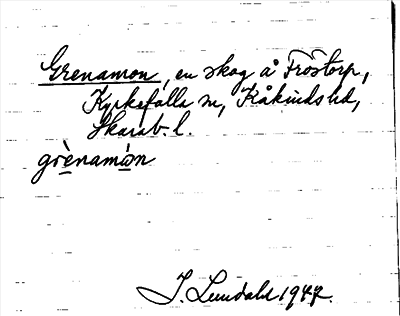 Grenamon, en skog å Frostorp,
Kyrkefalla sn, Kåkinds hd,
Skarab. l.
grènamòn
I. Lundahl 1947.